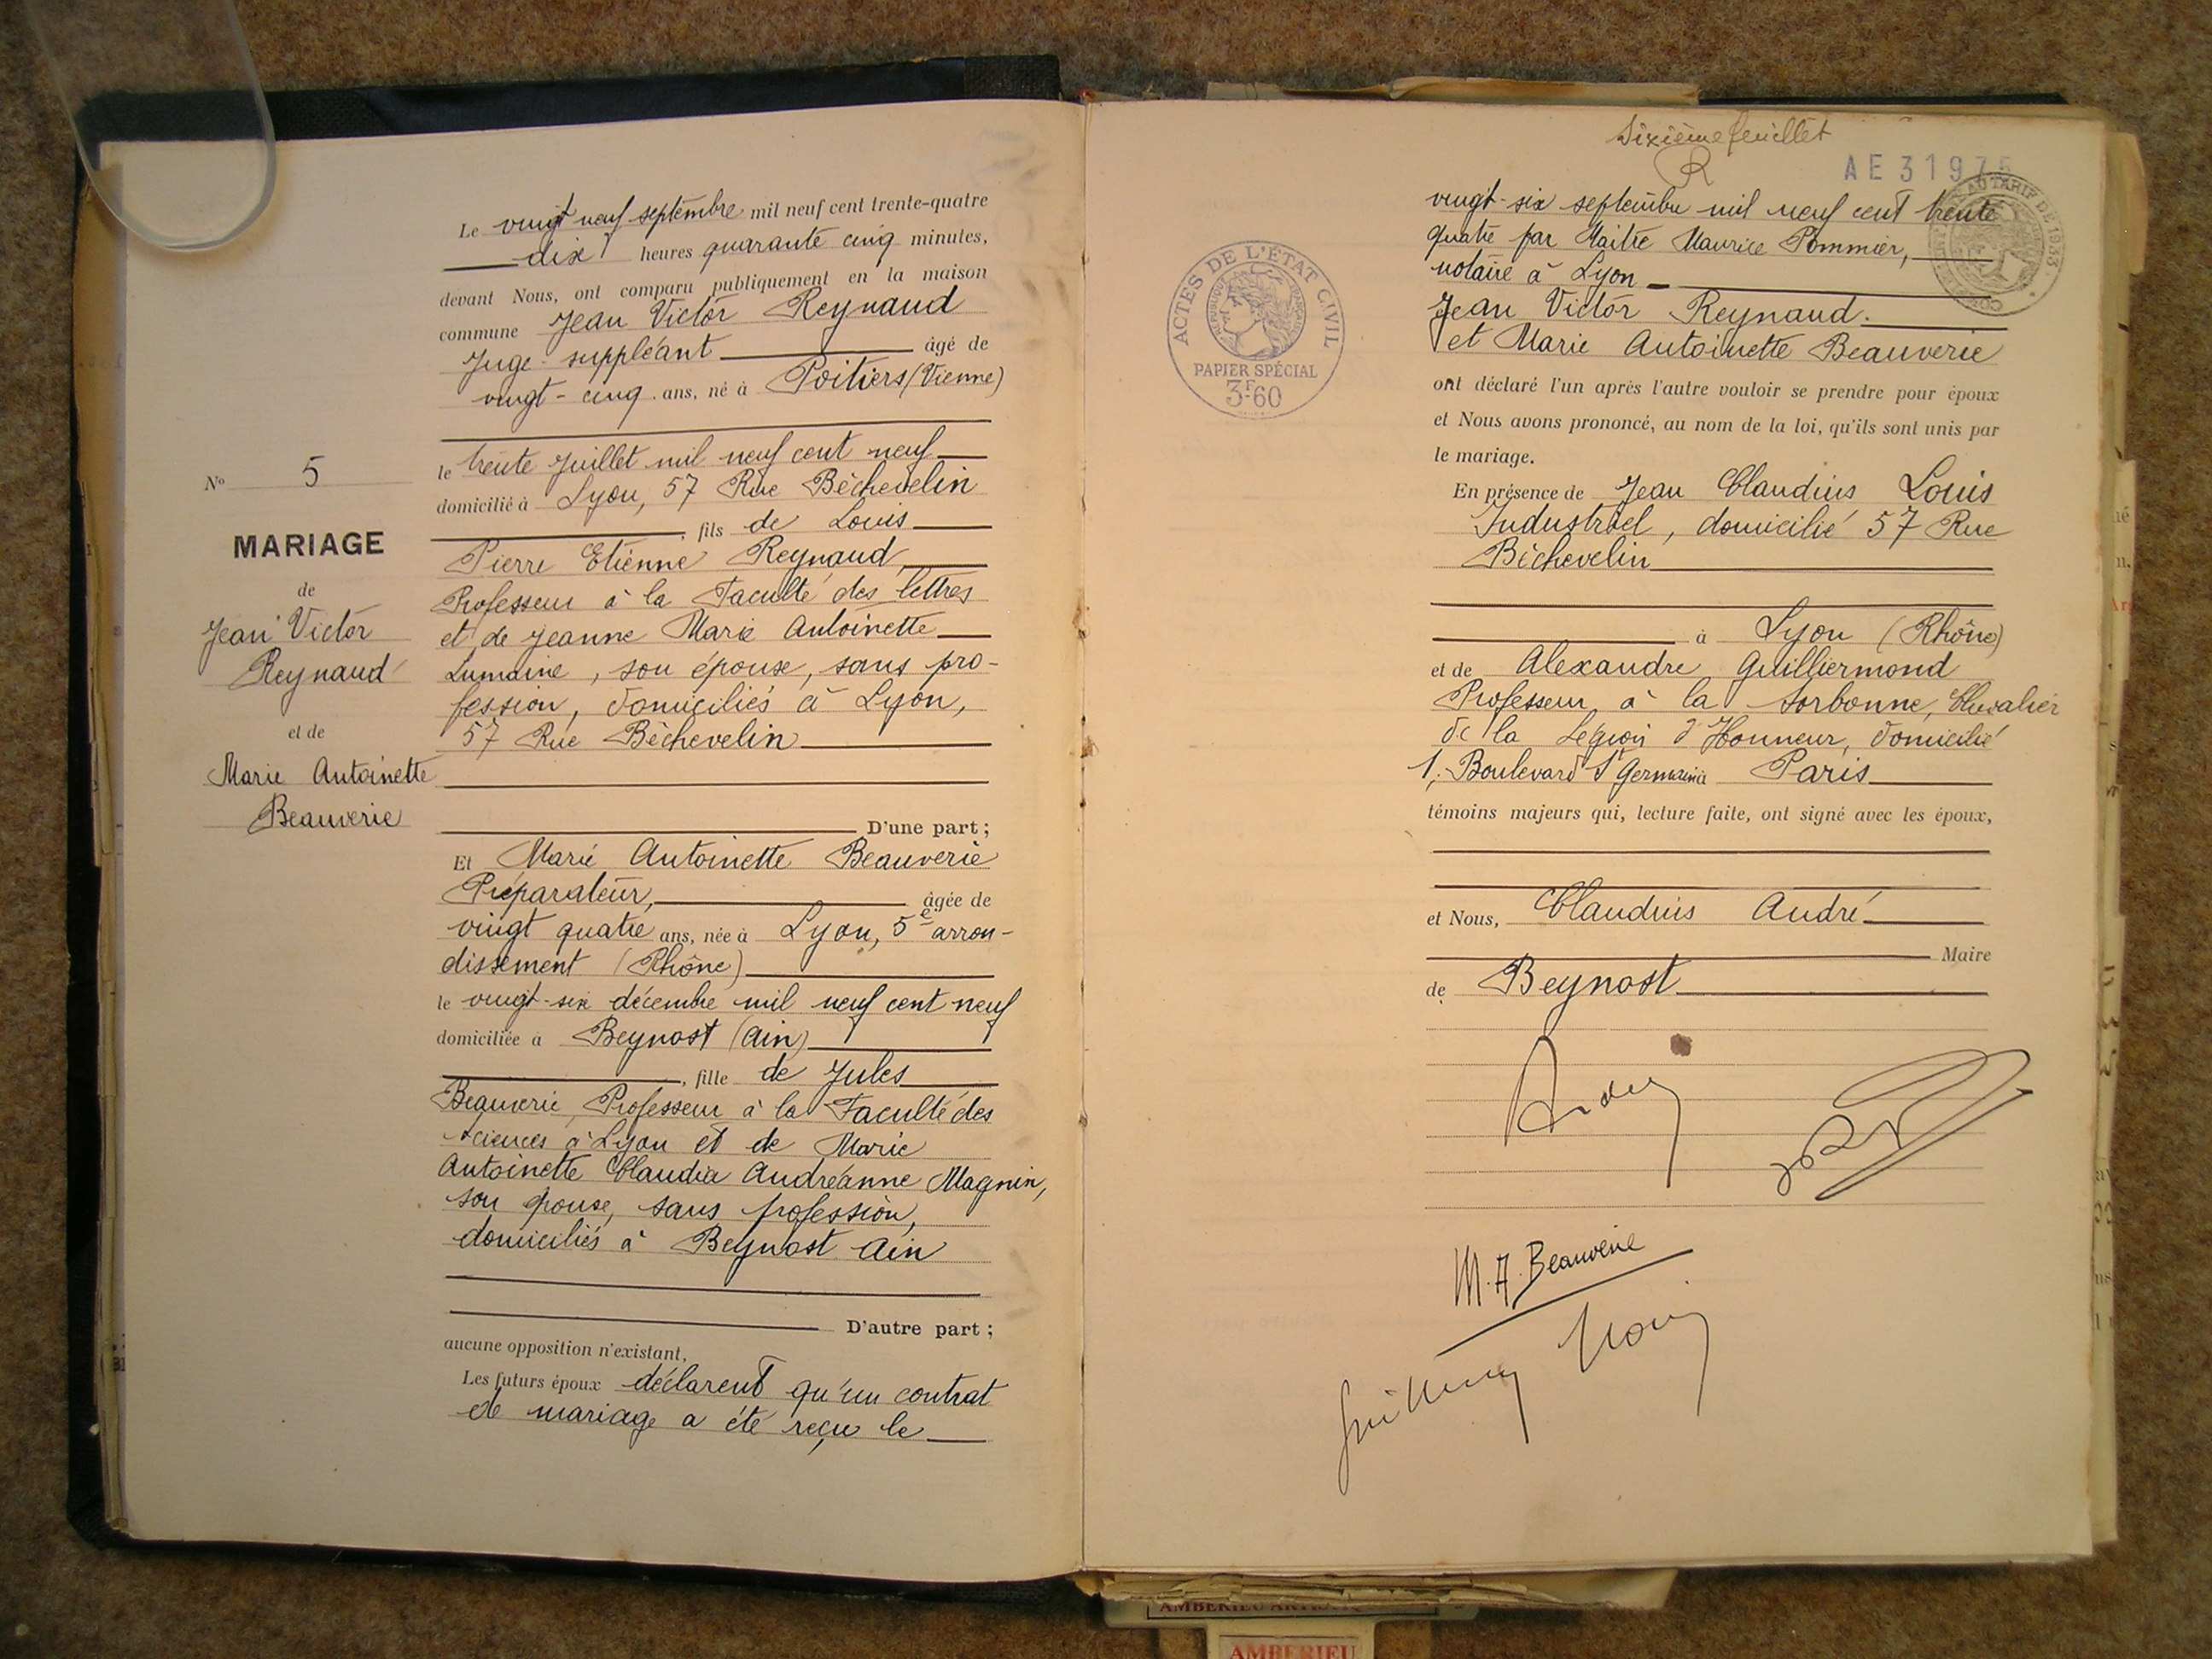 Le vingt neuf septembre mil neuf cent trente-quatre
dix heures quarante cinq minutes,
devant Nous, ont comparu publiquement en la maison
commune Jean Victor Reynaud
Juge suppléant âgé de
vingt-cinq ans, né à Poitiers (Vienne)
le trente Juillet mil neuf cent neuf
domicilié à Lyon, 57 Rue Béchevelin
, fils de Louis
Pierre Etienne Reynaud,
Professeur à la Faculté des lettres
et de Jeanne Marie Antoinette
Lumaine, son épouse, sans pro-
fession, domiciliés à Lyon,
57 Rue Béchevelin
D'une part ;
No 5
MARIAGE
de
Jean Victor
Reynaud
et de
Marie Antoinette
Beauverie
Et Marie Antoinette Beauverie
Préparateur, âgée de
vingt quatre ans, née à Lyon, 5e arron-
dissement (Rhône)
le vingt-six décembre mil neuf cent neuf
domiciliée à Beynost (Ain)
, fille de Jules
Beauverie, Professeur à la Faculté des
sciences à Lyon et de Marie
Antoinette Claudia Andréanne Magnin,
son épouse, sans profession,
domiciliés à Beynost Ain
D'autre part ;
aucune opposition n'existant,
Les futurs époux déclarent qu'un contrat
de mariage a été reçu le
Sixième feuillet
R
AE 31975
ACTES DE L'ÉTAT CIVIL
RÉPUBLIQUE FRANÇAISE
PAPIER SPÉCIAL
3F60
AU TARIF DE 1933
vingt-six septembre mil neuf cent trente
quatre par Maitre Maurice Pommier,
notaire à Lyon
Jean Victor Reynaud.
et Marie Antoinette Beauverie
ont déclaré l'un après l'autre vouloir se prendre pour époux
et Nous avons prononcé, au nom de la loi, qu'ils sont unis par
le mariage.
En présence de Jean Claudius Louis
Industriel, domicilié 57 Rue
Béchevelin
à Lyon (Rhône)
et de Alexandre Guilliermond
Professeur à la Sorbonne, Chevalier
de la Légion d'Honneur, domicilié
1, Boulevard St Germain à Paris
témoins majeurs qui, lecture faite, ont signé avec les époux,
et Nous, Claudius André
Maire
de Beynost
M.A. Beauverie
AMBERIEU